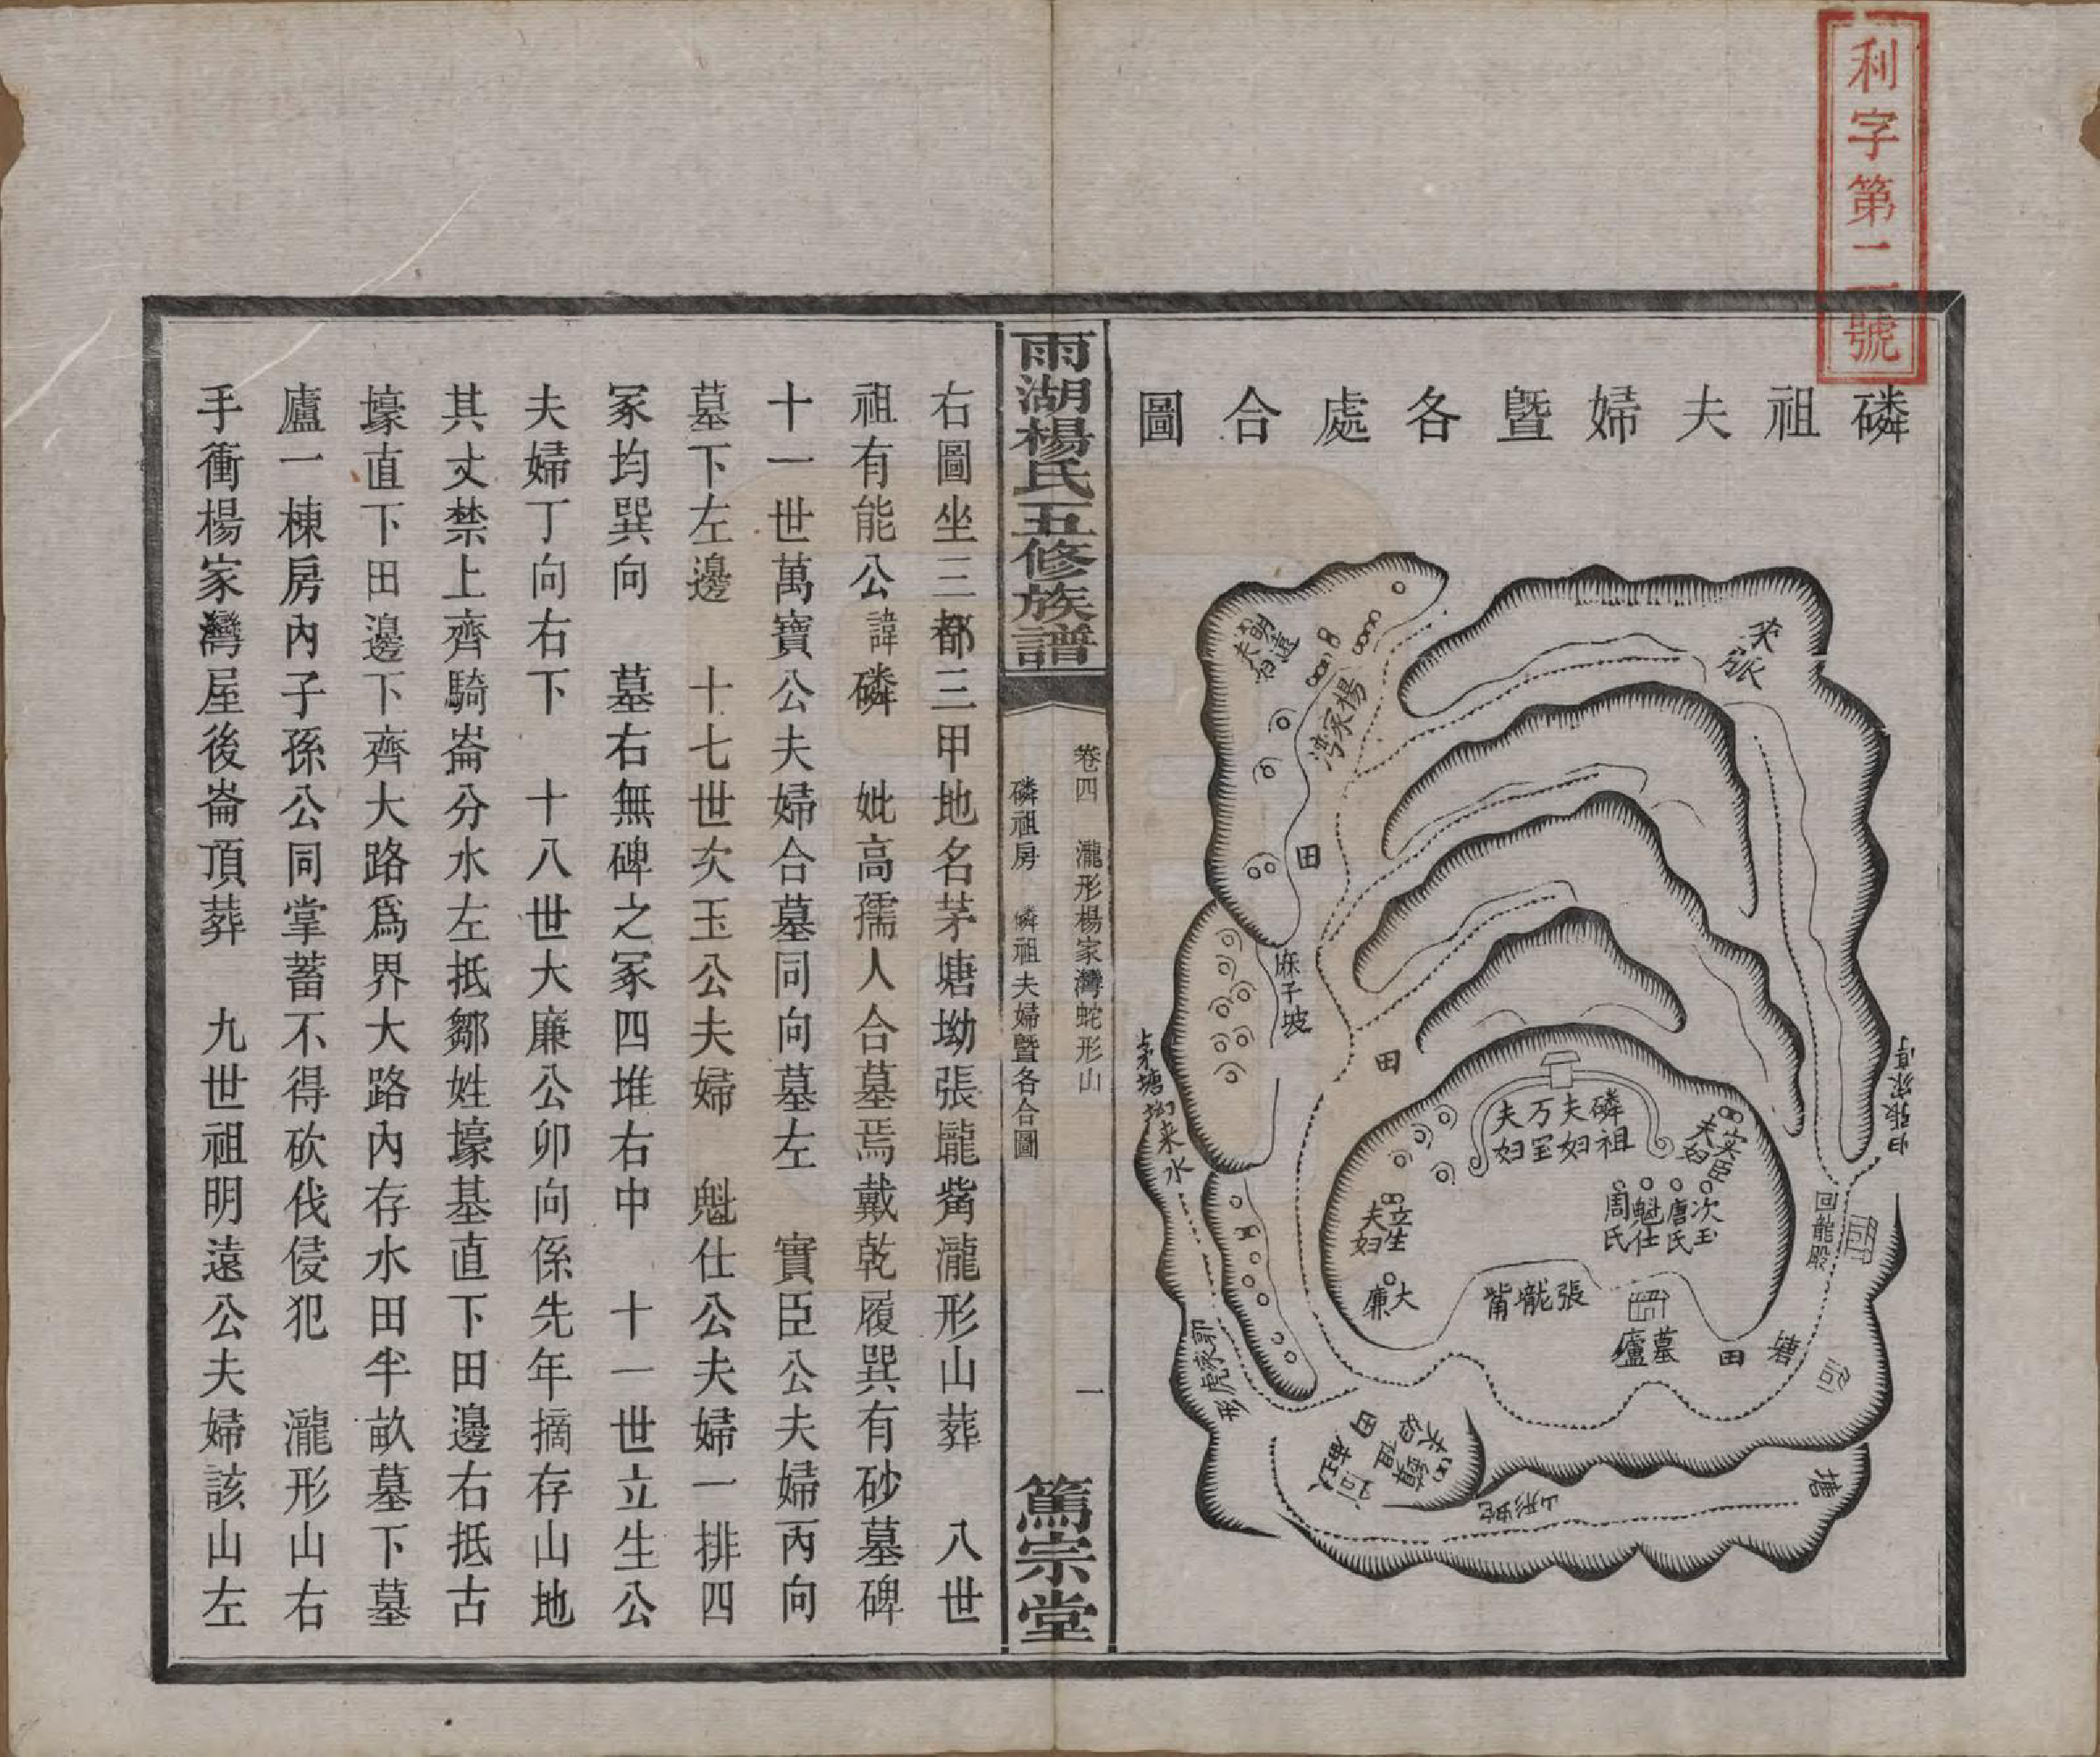 利字第二號
磷祖夫婦暨各處合圖
宋張
明遠夫妇
楊家湾
田
麻子坡
田
上茅塘坳来水
归張家亭
磷祖夫妇
万宝夫妇
实臣夫妇
次玉
唐氏
魁仕
周氏
立生夫妇
大廉
張壠嘴
墓廬
田
塘
回龍殿
郭家虎形
田
蛇形山
塘
雨湖楊氏五修族譜
卷四　瀧形楊家灣蛇形山
磷祖房　憐祖夫婦暨各合圖
一
篤宗堂
右圖坐三都三甲地名茅塘坳張壠嘴瀧形山葬　八世
祖有能公諱磷　妣高孺人合墓焉戴乾履巽有砂墓碑
十一世萬寶公夫婦合墓同向墓左　實臣公夫婦丙向
墓下左邊　十七世次玉公夫婦　魁仕公夫婦一排四
冢均巽向　墓右無碑之冢四堆右中　十一世立生公
夫婦丁向右下　十八世大廉公卯向係先年摘存山地
其丈禁上齊騎崙分水左抵鄒姓壕基直下田邊右抵古
壕直下田邊下齊大路爲界大路內存水田半畝墓下墓
廬一棟房內子孫公同掌蓄不得砍伐侵犯　瀧形山右
手衝楊家灣屋後崙頂葬　九世祖明遠公夫婦該山左